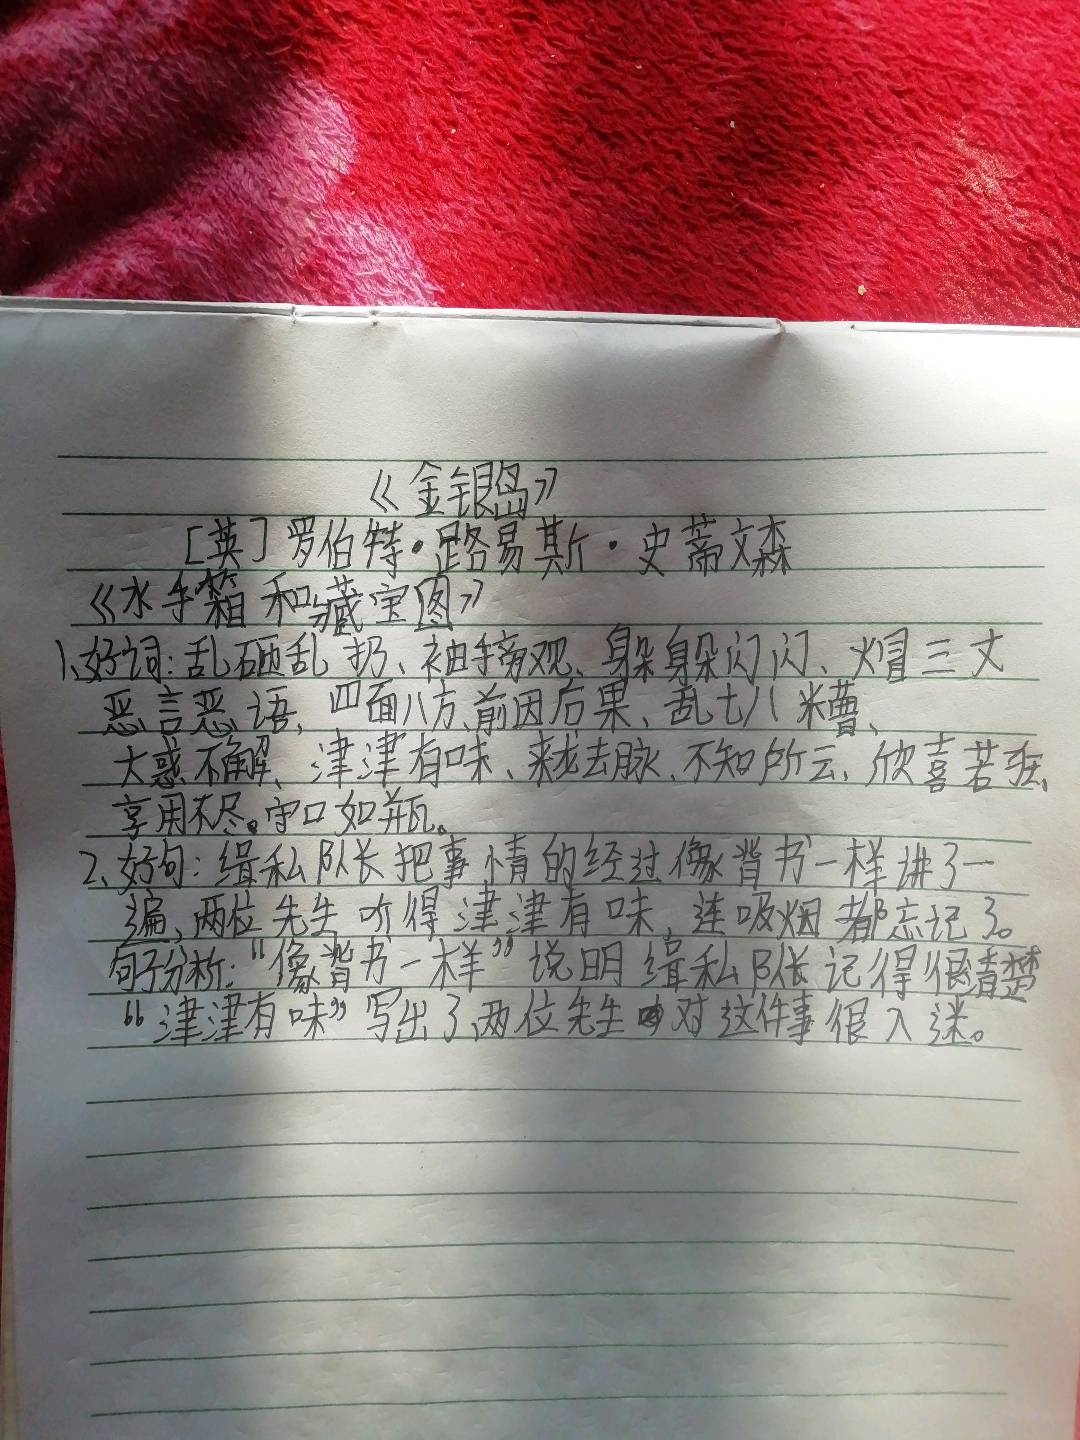 《金银岛》
[英]罗伯特·路易斯·史蒂文森
《水手箱和藏宝图》
1、好词:乱砸乱扔、袖手旁观、躲躲闪闪、火冒三丈
恶言恶语、四面八方、前因后果、乱七八糟、
大惑不解、津津有味、来龙去脉、不知所云、欣喜若狂、
享用不尽。守口如瓶。
2、好句:缉私队长把事情的经过像背书一样讲了一
遍,两位先生听得津津有味,连吸烟都忘记了。
句子分析:“像背书一样”说明缉私队长记得很清楚
“津津有味”写出了两位先生对这件事很入迷。